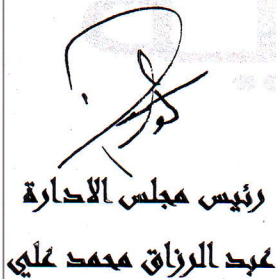 رئيس مجلس الادارة
عبد الرزاق محمد علي